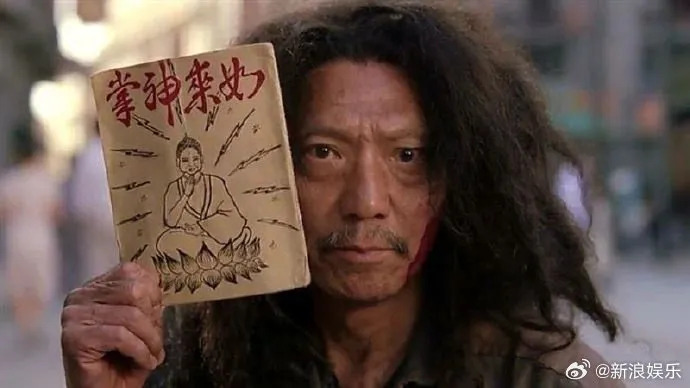 如來神掌
@新浪娱乐